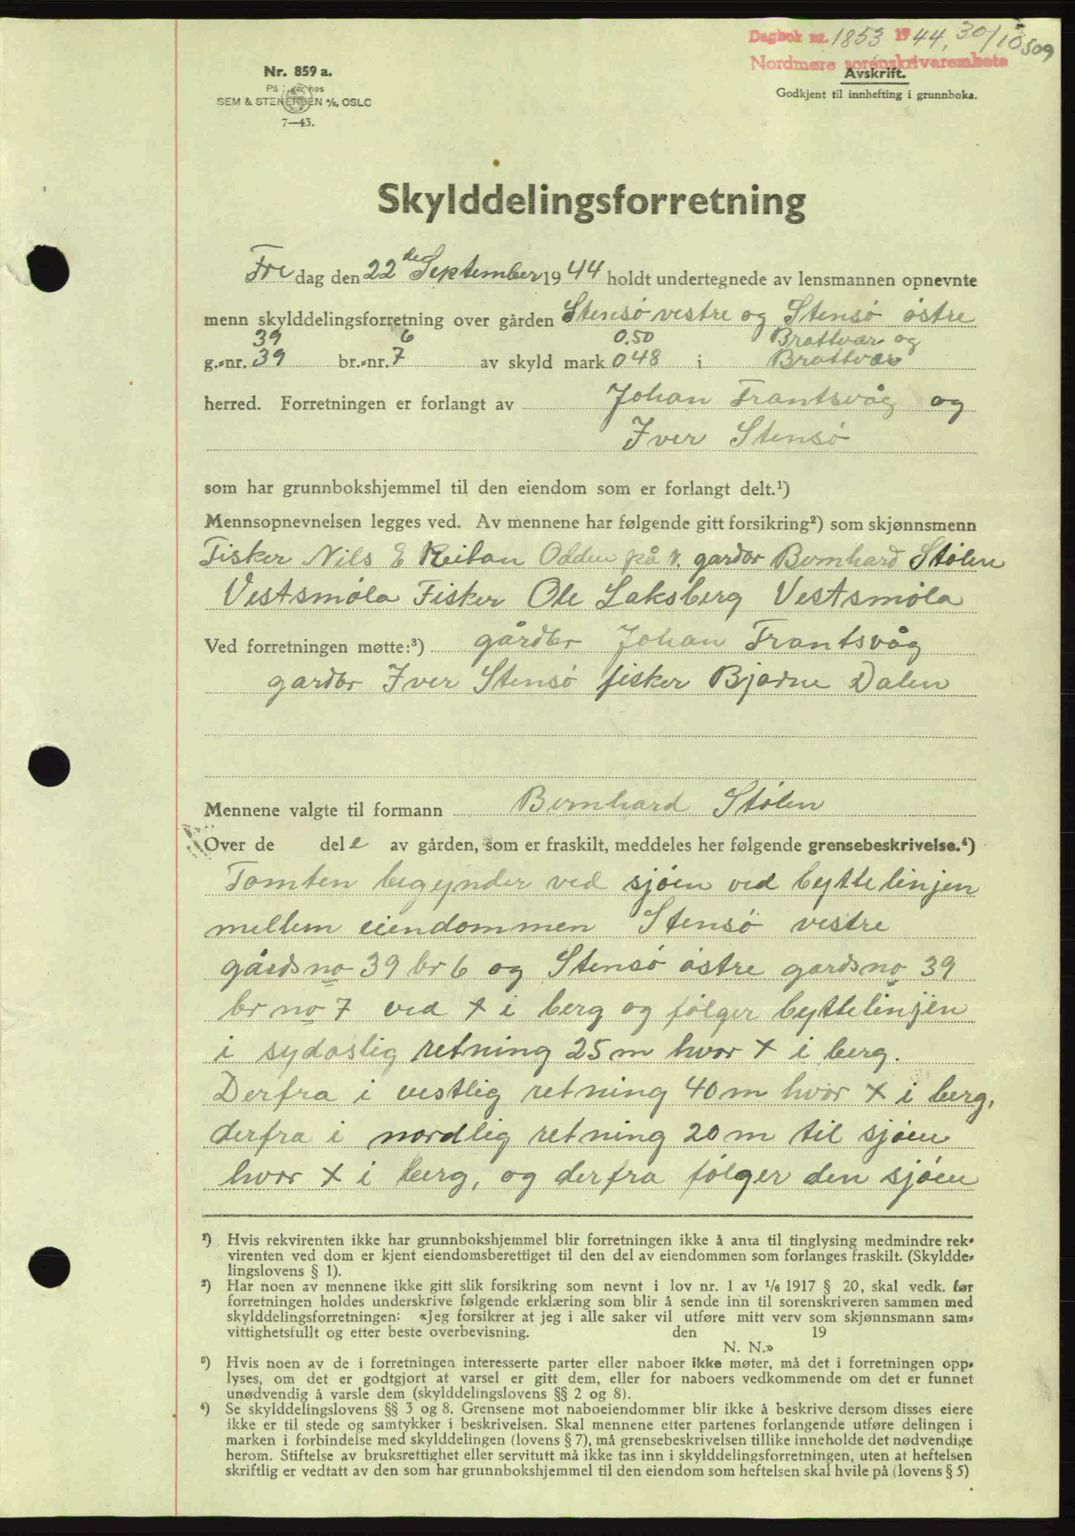 Dagbok nr. 1853 1944, 30/10 509
Nordmøre sorenskrivarembete
Avskrift.
Godkjent til innhefting i grunnboka.
Nr. 859 a.
SEM & STENERSEN A/S, OSLO
7—43.
Skylddelingsforretning
Fre dag den 22 de September 1944 holdt undertegnede av lensmannen opnevnte
menn skylddelingsforretning over gården Stensö vestre og Stensö östre
39 6 0.50 Brattvær og
g.-nr. 39 br.-nr. 7 av skyld mark 048 i Brattvær
herred. Forretningen er forlangt av Johan Frantsvåg og
Iver Stensö
som har grunnbokshjemmel til den eiendom som er forlangt delt.¹)
Mennsopnevnelsen legges ved. Av mennene har følgende gitt forsikring²) som skjønnsmenn
Fisker Nils E Reitan Odden på v. gardbr Bernhard Stølen
Vestsmøla Fisker Ole Laksberg Vestsmøla
Ved forretningen møtte:³) gårdbr Johan Frantsvåg
gardbr Iver Stensö fisker Bjarne Dalen
Mennene valgte til formann Bernhard Stölen
Over de dele av gården, som er fraskilt, meddeles her følgende grensebeskrivelse.⁴)
Tomten begynder ved sjöen ved byttelinjen
mellem eiendommen Stensö vestre
gårdsno 39 br 6 og Stensö östre gardsno 39
br no 7 ved X i berg og fölger byttelinjen
i sydöslig retning 25 m hvor X i berg.
Derfra i vestlig retning 40 m hvor X i berg,
derfra i nordlig retning 20 m til sjöen
hvor X i berg, og derfra fölger den sjöen
¹) Hvis rekvirenten ikke har grunnbokshjemmel blir forretningen ikke å anta til tinglysing medmindre rek-
virenten ved dom er kjent eiendomsberettiget til den del av eiendommen som forlanges fraskilt. (Skyldde-
lingslovens § 1).
²) Har noen av mennene ikke gitt slik forsikring som nevnt i lov nr. 1 av ¹/₆ 1917 § 20, skal vedk. før
forretningen holdes underskrive følgende erklæring som blir å sende inn til sorenskriveren sammen med
skylddelingsforretningen: «Jeg forsikrer at jeg i alle saker vil utføre mitt verv som skjønnsmann sam-
vittighetsfullt og etter beste overbevisning. den 19
N. N.»
³) Hvis noen av de i forretningen interesserte parter eller naboer ikke møter, må det i forretningen opp-
lyses, om det er godtgjort at varsel er gitt dem, eller for naboers vedkommende om det er funnet
unødvendig å varsle dem (skylddelingslovens §§ 2 og 8).
⁴) Se skylddelingslovens §§ 3 og 8. Grensene mot naboeiendommer blir ikke å beskrive dersom disses eiere
ikke er til stede og samtykker i beskrivelsen. Skal mennene etter partenes forlangende utføre delingen i
marken i forbindelse med skylddelingen (lovens § 7), må grensebeskrivelsen tillike inneholde det nødvendige
herom. Stiftelse av bruksrettighet eller servitutt må ikke tas inn i skylddelingsforretningen, uten at heftelsen
skriftlig er vedtatt av den som har grunnbokshjemmel til den eiendom som heftelsen skal hvile på (lovens § 5)